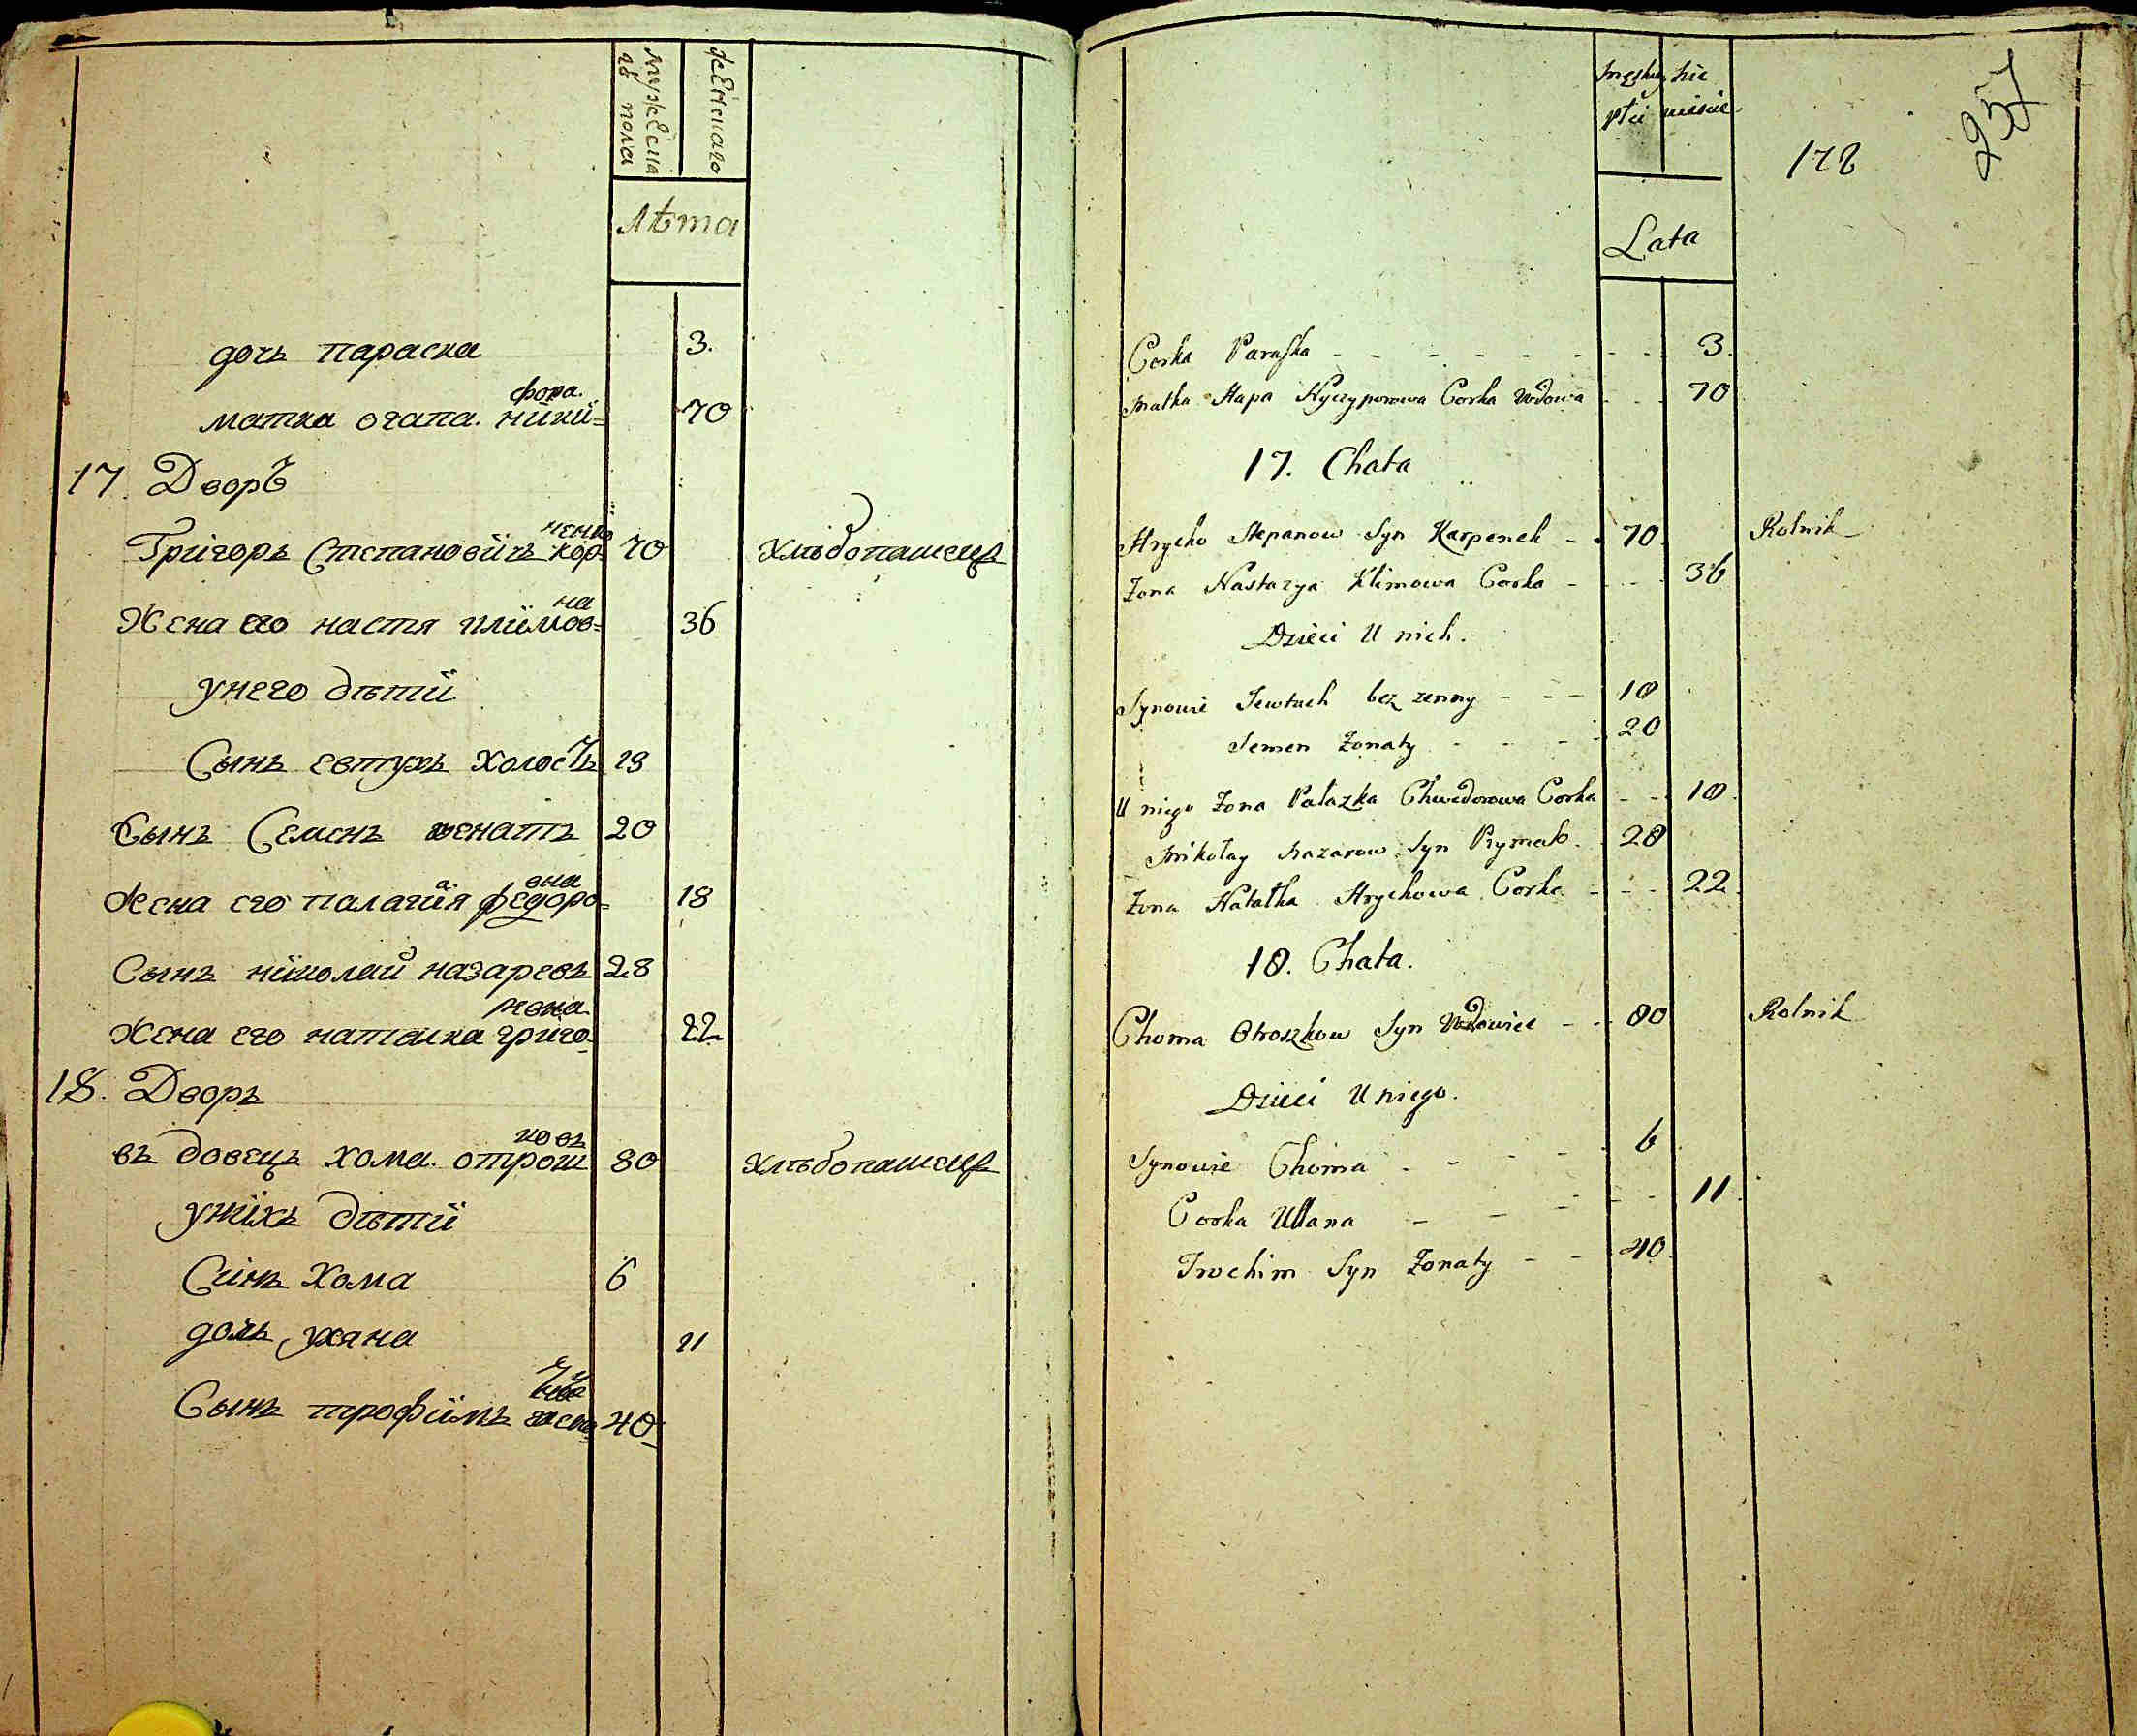 мужеска
го пола
женскаго
лѣта
дочь параска 3.
матка огапа. ники=фора. 70
17. Дворъ
Григоръ Степановичъ кор=ненко 70 хлѣбопашецъ
Жена его настя климов=на 36
унего дѣти
Сынъ евтухъ холостъ 18
Сынъ Семенъ женатъ 20
Жена его палагия федоро=вна 18
Сынъ николай назаревъ 28
Жена его наталка григо=ревна 22
18. Дворъ
въ довецъ хома. отрошковъ 80 хлѣбопашецъ
унихъ дѣти
Синъ Хома 6
дочь уляна 11
Сынъ трофимъ 40
męskiey
płci
178
257
Lata
Corka Paraska - - - - - - - - 3.
matka Hapa Nyczyporowa Corka Wdowa - - 70
17. Chata
Hrycko Stepanow Syn Karpenek - - 70. Rolnik
Żona Nastazya Klimowa Corka - - - 36
Dzieci U nich.
Synowie Jewtuch bez zenny - - - 18
Semen Żonaty - - - - 20
U niego Żona Palazka Chwedorowa Corka - - 18.
Mikołay Nazarow Syn Prymak. 28
Żona Natalka Hryckowa Corka - - - 22.
18. Chata.
Choma Otroszkow Syn Wdowiec - - 80 Rolnik
Dzieci U niego.
Synowie Choma - - - - 6
Corka Ullana - - - - - 11.
Trochim Syn Żonaty - - 40.